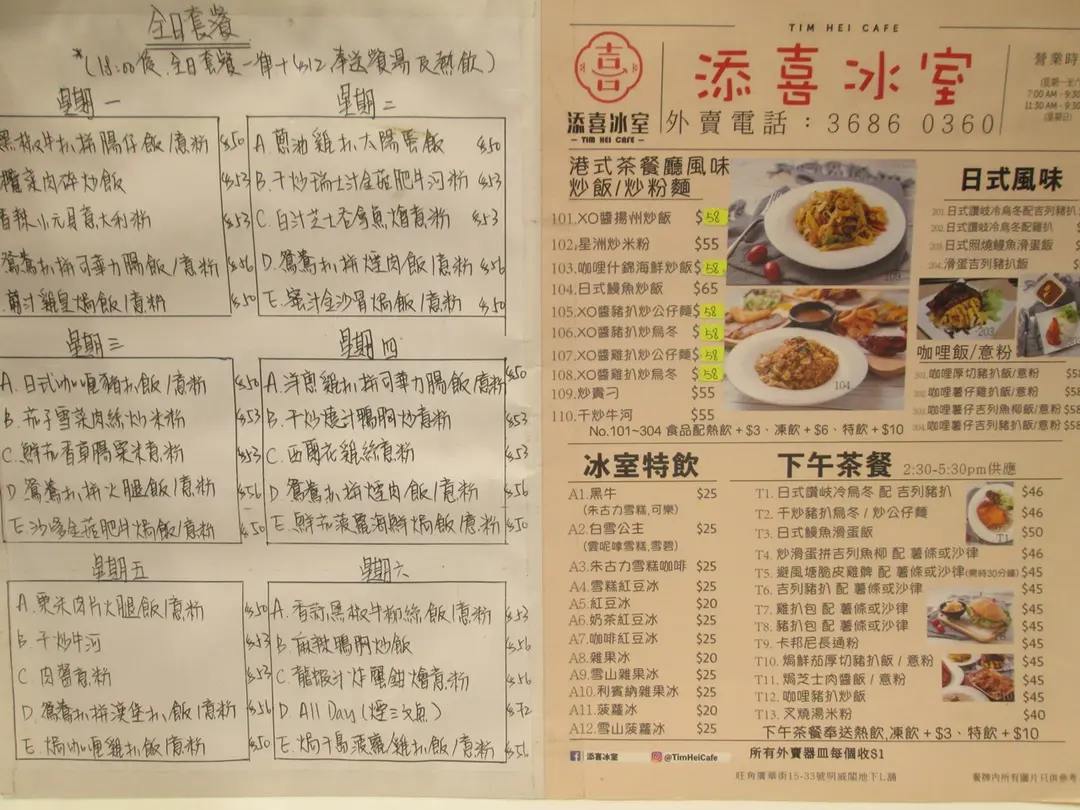 全日套餐
*(18:00後 全日套餐一律+$12 奉送餐湯及熱飲)
星期一
黑椒牛扒拼腸仔飯/意粉 $50
欖菜肉碎炒飯 $53
香辣小元貝意大利粉 $53
鴛鴦扒拼可華力腸飯/意粉 $56
茄汁雞皇焗飯/意粉 $50
星期二
A. 蔥油雞扒大腸蛋飯 $50
B. 干炒瑞士汁金菇肥牛河粉 $53
C. 白汁芝士吞拿魚燴意粉 $53
D. 鴛鴦扒拼煙肉飯/意粉 $56
E. 蜜汁金沙骨焗飯/意粉 $50
星期三
A. 日式咖喱豬扒飯/意粉 $50
B. 茄子雪菜肉絲炒米粉 $53
C. 鮮茄香草腸粟米意粉 $53
D. 鴛鴦扒拼火腿飯/意粉 $56
E. 沙爹金菇肥牛焗飯/意粉 $50
星期四
A. 洋蔥雞扒拼可華力腸飯/意粉 $50
B. 干炒燒汁鴨胸炒意粉 $53
C. 西蘭花雞絲意粉 $53
D. 鴛鴦扒拼煙肉飯/意粉 $56
E. 鮮茄菠蘿海鮮焗飯/意粉 $50
星期五
A. 粟米肉片火腿飯/意粉 $50
B. 干炒牛河 $53
C. 肉醬意粉 $53
D. 鴛鴦扒拼漢堡扒飯/意粉 $56
E. 焗咖喱雞扒飯/意粉 $50
星期六
A. 香煎黑椒牛柳絲飯/意粉 $53
B. 麻辣鴨胸炒飯 $56
C. 龍蝦汁炸蟹鉗燴意粉 $56
D. All Day (煙三文魚) $72
E. 焗千島菠蘿雞扒飯/意粉 $56
TIM HEI CAFE
添喜冰室
添喜冰室
TIM HEI CAFE
外賣電話:3686 0360
營業時
(星期一至六
7:00 AM - 9:30
11:30 AM - 9:30
(星期日)
港式茶餐廳風味
炒飯/炒粉麵
101.XO醬揚州炒飯 $58
102.星洲炒米粉 $55
103.咖哩什錦海鮮炒飯 $58
104.日式鰻魚炒飯 $65
105.XO醬豬扒炒公仔麵 $58
106.XO醬豬扒炒烏冬 $58
107.XO醬雞扒炒公仔麵 $58
108.XO醬雞扒炒烏冬 $58
109.炒貴刁 $55
110.干炒牛河 $55
104
日式風味
201.日式讚岐冷烏冬配吉列豬扒
202.日式讚岐冷烏冬配雞扒
203.日式照燒鰻魚滑蛋飯
204.滑蛋吉列豬扒飯
203
咖哩飯/意粉
301.咖哩厚切豬扒飯/意粉 $58
302.咖哩薯仔雞扒飯/意粉 $5
303.咖哩薯仔吉列魚柳飯/意粉 $58
304.咖哩薯仔吉列豬扒飯/意粉 $58
No.101~304 食品配熱飲+$3、凍飲+$6、特飲+$10
冰室特飲
A1.黑牛 $25
(朱古力雪糕,可樂)
A2.白雪公主 $25
(雲呢嗱雪糕,雪碧)
A3.朱古力雪糕咖啡 $25
A4.雪糕紅豆冰 $25
A5.紅豆冰 $20
A6.奶茶紅豆冰 $25
A7.咖啡紅豆冰 $25
A8.雜果冰 $20
A9.雪山雜果冰 $25
A10.利賓納雜果冰 $25
A11.菠蘿冰 $20
A12.雪山菠蘿冰 $25
下午茶餐 2:30-5:30pm供應
T1. 日式讚岐冷烏冬 配 吉列豬扒 $46
T2. 干炒豬扒烏冬 / 炒公仔麵 $46
T3. 日式鰻魚滑蛋飯 $50
T4. 炒滑蛋拼吉列魚柳 配 薯條或沙律 $46
T5. 避風塘脆皮雞髀 配 薯條或沙律(需時30分鐘) $45
T6. 吉豬扒包 配 薯條或沙律 $45
T7. 雞扒包 配 薯條或沙律 $45
T8. 豬扒包 配 薯條或沙律 $45
T9. 卡邦尼長通粉 $45
T10. 焗鮮茄厚切豬扒飯 / 意粉 $45
T11. 焗芝士肉醬飯 / 意粉 $45
T12. 咖哩豬扒炒飯 $45
T13. 叉燒湯米粉 $40
T1
T6
T10
下午茶餐奉送熱飲,凍飲+$3、特飲+$10
添喜冰室
@TimHeiCafe
所有外賣器皿每個收$1
旺角廣華街15-33號明威閣地下L舖
餐牌內所有圖片只供參考